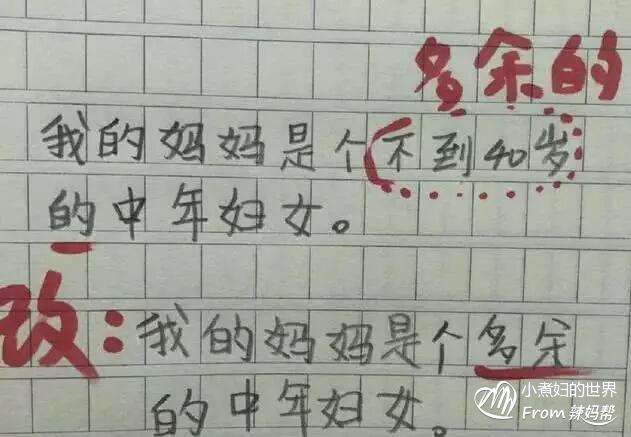 多余的
我的妈妈是个(不到40岁
的中年妇女。
改:我的妈妈是个多余
的中年妇女。
小煮妇的世界
From 辣妈帮